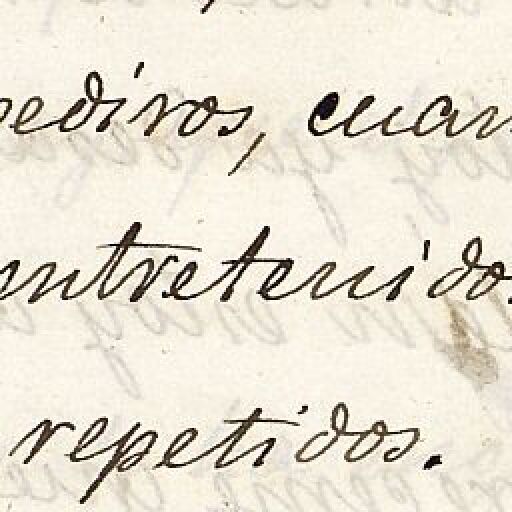 pediros, cuan
entretenidos
repetidos.